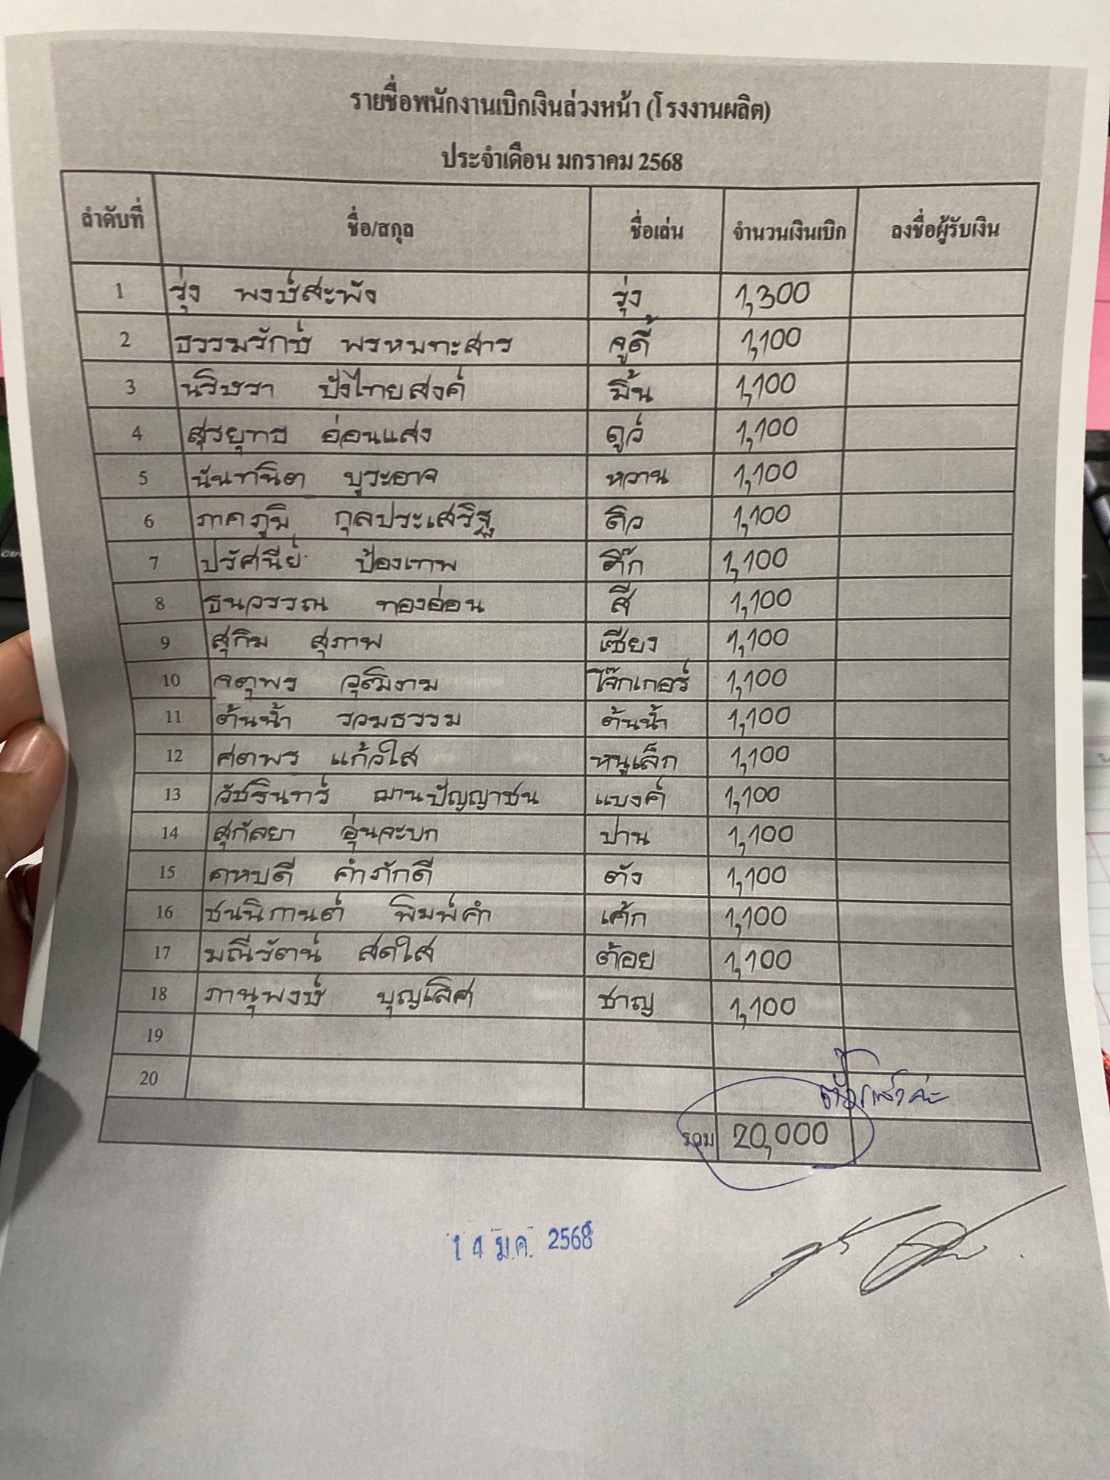 รายชื่อพนักงานเบิกเงินล่วงหน้า (โรงงานผลิต)
ประจำเดือน มกราคม 2568
ลำดับที่ ชื่อ/สกุล ชื่อเล่น จำนวนเงินเบิก ลงชื่อผู้รับเงิน
1 รุ่ง พงษ์สะพัง รุ่ง 1,300
2 ธรรมรักษ์ พรหมทะสาร จูดี้ 1,100
3 นริษรา ปังไทยสงค์ มิ้น 1,100
4 สุรยุทธ อ่อนแสง ดูว์ 1,100
5 นันทนิต บูระอาจ หวาน 1,100
6 ภาคภูมิ กุลประเสริฐ ดิว 1,100
7 ปรัศนีย์ ป้องเทพ ติ๊ก 1,100
8 ธนวรรณ ทองอ่อน สี 1,100
9 สุกิม สุภาพ เซียง 1,100
10 จตุพร วุฒิงาม โจ๊กเกอร์ 1,100
11 ต้นน้ำ รวมธรรม ต้นน้ำ 1,100
12 ศตพร แก้วใส หนูเล็ก 1,100
13 วัชรินทร์ ฌานปัญญาชน แบงค์ 1,100
14 สุกัลยา อุ่นจะบก ปาน 1,100
15 คหบดี คำภักดี ตัง 1,100
16 ชนนิกานต์ พิมพ์คำ เค้ก 1,100
17 มณีรัตน์ สดใส ต้อย 1,100
18 ภานุพงษ์ บุญเลิศ ชาญ 1,100
19
20
รวม 20,000
14 ม.ค. 2568